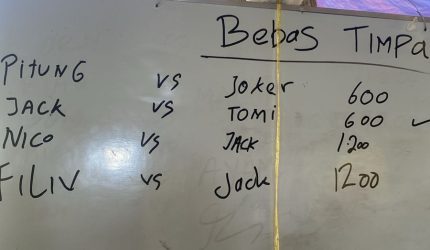 BEBAS TIMPA
PITUNG VS JOKER 600
JACK VS TOMI 600 ✓
NICO VS JACK 1.200
FILIV VS Jack 1200